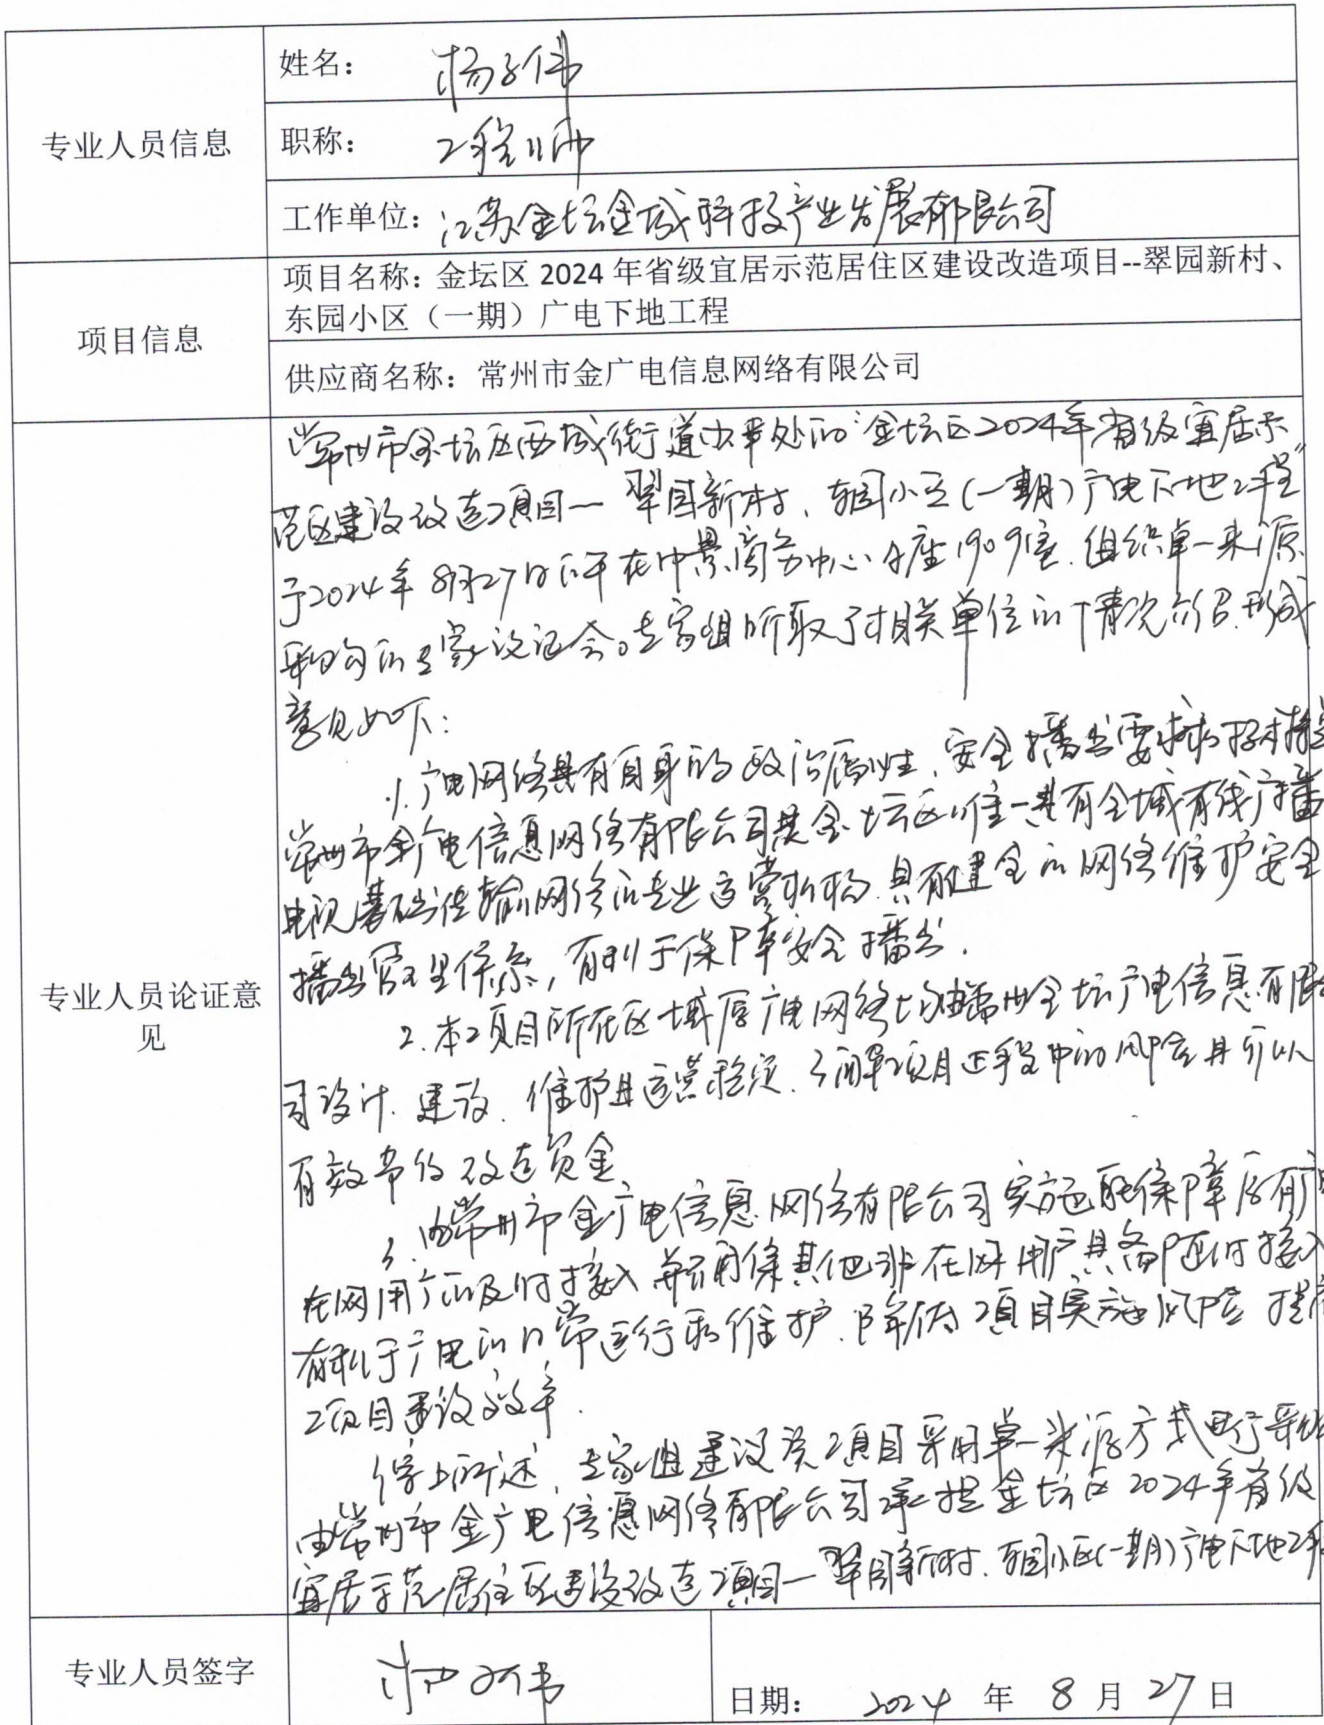 专业人员信息
姓名：杨子伟
职称：工程师
工作单位：江苏金坛金城科技产业发展有限公司
项目信息
项目名称：金坛区 2024 年省级宜居示范居住区建设改造项目--翠园新村、
东园小区（一期）广电下地工程
供应商名称：常州市金广电信息网络有限公司
专业人员论证意
见
常州市金坛区西城街道办事处的“金坛区2024年省级宜居示
范区建设改造项目一翠园新村、东园小区(一期)广电下地工程”
于2024年8月27日下午在中景商务中心A座1909室.组织单一来源
采购的专家论证会。专家组听取了相关单位的情况介绍.形成
意见如下:
1.广电网络具有自身的政治属性、安全播出要求
常州市金广电信息网络有限公司是金坛区唯一具有全域有线广播
电视基础传输网络的专业运营机构.具有健全的网络维护安全
播出管理体系,有利于保障安全播出.
2.本项目所在区域原广电网络均由常州金坛广电信息有限公
司设计.建设.维护且运营稳定.了解项目过程中的风险且可以
有效节约改造资金
3.由常州市金广电信息网络有限公司实施能保障原有广电
在网用户的及时接入并确保其他非在网用户具备随时接入
有利于广电的日常运行和维护.降低项目实施风险 提高
项目建设效率.
综上所述,专家组建议该项目采用单一来源方式进行采购
由常州市金广电信息网络有限公司承担金坛区2024年省级
宜居示范居住区建设改造项目一翠园新村.东园小区(一期)广电下地工程
专业人员签字
杨子伟
日期：2024 年 8 月 27 日